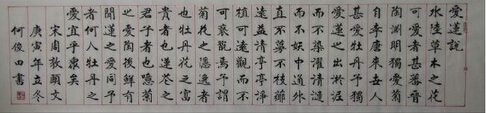 愛蓮說
水陸草木之花
可愛者甚蕃晉
陶淵明獨愛菊
自李唐來世人
甚愛牡丹予獨
愛蓮之出淤泥
而不染濯清漣
而不妖中通外
直不蔓不枝香
遠益清亭亭淨
植可遠觀而不
可褻翫焉予謂
菊花之隱逸者
也牡丹花之富
貴者也蓮花之
君子者也噫菊
之愛陶後鮮有
聞蓮之愛同予
者何人牡丹之
愛宜乎眾矣
宋周敦頤文
庚寅年立冬
何俊田書